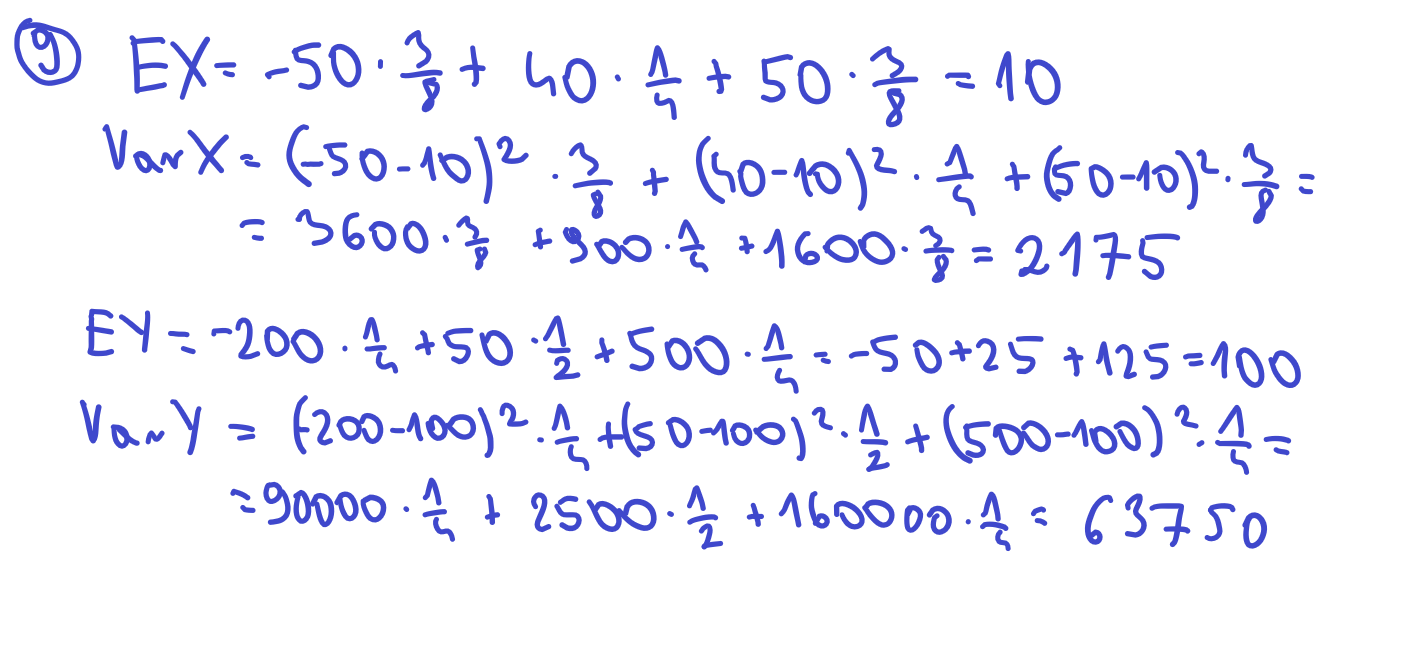 ⑨ EX = -50 · 3/8 + 40 · 1/4 + 50 · 3/8 = 10
Var X = (-50-10)² · 3/8 + (40-10)² · 1/4 + (50-10)² · 3/8 =
= 3600 · 3/8 + 900 · 1/4 + 1600 · 3/8 = 2175
EY = -200 · 1/4 + 50 · 1/2 + 500 · 1/4 = -50 + 25 + 125 = 100
Var Y = (-200-100)² · 1/4 + (50-100)² · 1/2 + (500-100)² · 1/4 =
= 90000 · 1/4 + 2500 · 1/2 + 160000 · 1/4 = 63750